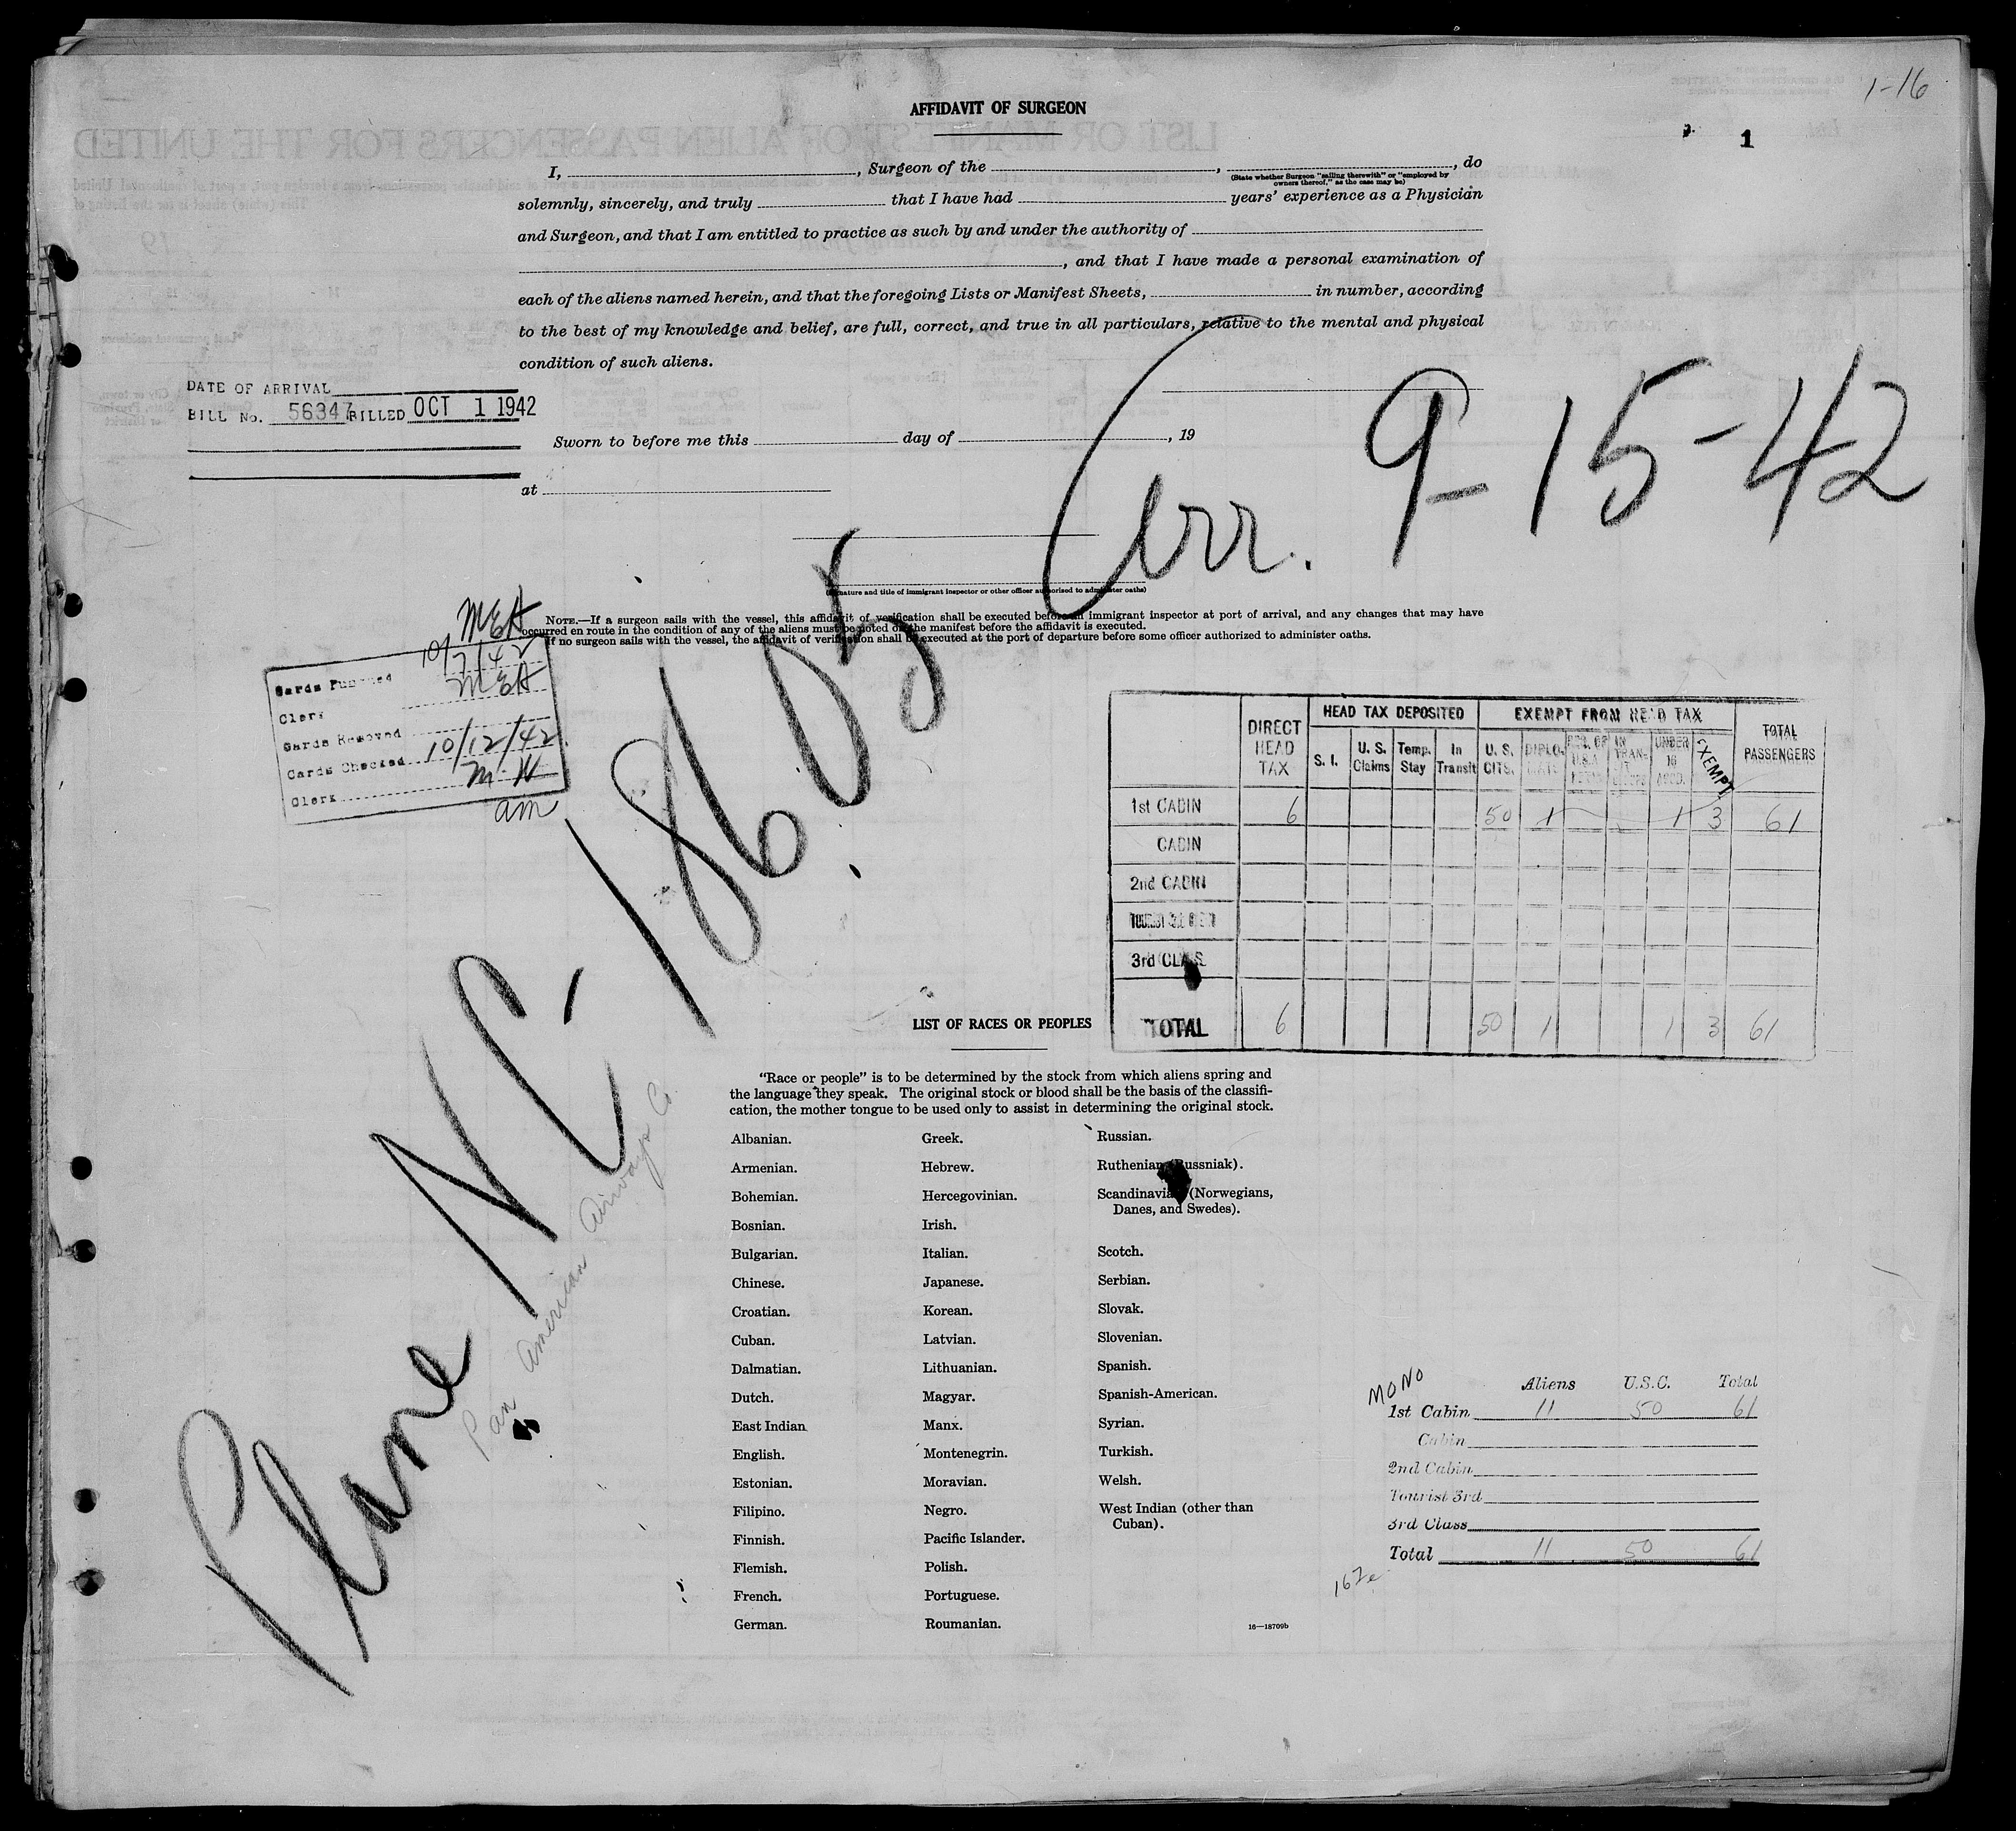 1-16
1
AFFIDAVIT OF SURGEON
I, , Surgeon of the , , do
(State whether Surgeon "sailing therewith" or "employed by
owners thereof," as the case may be)
solemnly, sincerely, and truly that I have had years' experience as a Physician
and Surgeon, and that I am entitled to practice as such by and under the authority of
, and that I have made a personal examination of
each of the aliens named herein, and that the foregoing Lists or Manifest Sheets, in number, according
to the best of my knowledge and belief, are full, correct, and true in all particulars, relative to the mental and physical
condition of such aliens.
DATE OF ARRIVAL
BILL No. 56347 BILLED OCT 1 1942
Sworn to before me this day of , 19
at
Arr. 9-15-42
(Signature and title of immigrant inspector or other officer authorized to administer oaths)
NOTE.—If a surgeon sails with the vessel, this affidavit of verification shall be executed before an immigrant inspector at port of arrival, and any changes that may have
occurred en route in the condition of any of the aliens must be noted on the manifest before the affidavit is executed.
If no surgeon sails with the vessel, the affidavit of verification shall be executed at the port of departure before some officer authorized to administer oaths.
MEA
Cards Punched 10/7/42
Clerk MEA
Cards Removed
Cards Checked 10/12/42
Clerk M. W
am
Plane NC-18605
Pan American Airways Co.
DIRECT HEAD TAX HEAD TAX DEPOSITED EXEMPT FROM HEAD TAX TOTAL PASSENGERS
S. I. U. S. Claims Temp. Stay In Transit U. S. CITS. DIPLO- UNDER 16 EXEMPT
1st CABIN 6 50 1 1 3 61
CABIN
2nd CABIN
3rd CLASS
TOTAL 6 50 1 1 3 61
LIST OF RACES OR PEOPLES
"Race or people" is to be determined by the stock from which aliens spring and
the language they speak. The original stock or blood shall be the basis of the classifi-
cation, the mother tongue to be used only to assist in determining the original stock.
Albanian.
Armenian.
Bohemian.
Bosnian.
Bulgarian.
Chinese.
Croatian.
Cuban.
Dalmatian.
Dutch.
East Indian
English.
Estonian.
Filipino.
Finnish.
Flemish.
French.
German.
Greek.
Hebrew.
Hercegovinian.
Irish.
Italian.
Japanese.
Korean.
Latvian.
Lithuanian.
Magyar.
Manx.
Montenegrin.
Moravian.
Negro.
Pacific Islander.
Polish.
Portuguese.
Roumanian.
Russian.
Ruthenian (Russniak).
Scandinavian (Norwegians,
Danes, and Swedes).
Scotch.
Serbian.
Slovak.
Slovenian.
Spanish.
Spanish-American.
Syrian.
Turkish.
Welsh.
West Indian (other than
Cuban).
16—18709b
MONO
Aliens U.S.C. Total
1st Cabin 11 50 61
Cabin
2nd Cabin
Tourist 3rd
3rd Class
Total 11 50 61